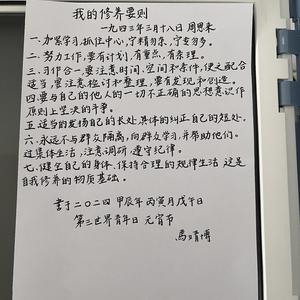 我的修养要则
一九四三年三月十八日 周恩来
一、加紧学习,抓住中心,宁精勿杂,宁专勿多。
二、努力工作,要有计划,有重点,有条理。
三、习作合一,要注意时间、空间和条件,使之配合
适当,要注意检讨和整理,要有发现和创造。
四、要与自己的他人的一切不正确的思想意识作
原则上坚决的斗争。
五、适当的发扬自己的长处,具体的纠正自己的短处。
六、永远不与群众隔离,向群众学习,并帮助他们。
过集体生活,注意调研,遵守纪律。
七、健全自己的身体,保持合理的规律生活,这是
自我修养的物质基础。
书于二〇二四 甲辰年 丙寅月 戊午日
第三世界青年日 元宵节
马靖博